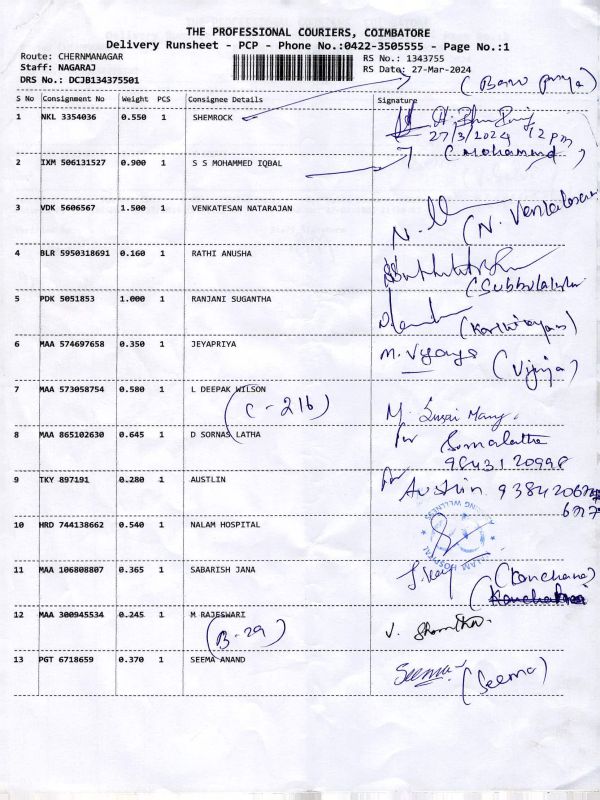 THE PROFESSIONAL COURIERS, COIMBATORE
Delivery Runsheet - PCP - Phone No.:0422-3505555 - Page No.:1
Route: CHERNMANAGAR
Staff: NAGARAJ
DRS No.: DCJB134375501
RS No.: 1343755
RS Date: 27-Mar-2024
S No Consignment No Weight PCS Consignee Details Signature
1 NKL 3354036 0.550 1 SHEMROCK
27/3/2024 12 pm
2 IXM 506131527 0.900 1 S S MOHAMMED IQBAL (Mohammed)
3 VDK 5606567 1.500 1 VENKATESAN NATARAJAN
4 BLR 5950318691 0.160 1 RATHI ANUSHA
5 PDK 5051853 1.000 1 RANJANI SUGANTHA
6 MAA 574697658 0.350 1 JEYAPRIYA
7 MAA 573058754 0.580 1 L DEEPAK WILSON
(C-216)
8 MAA 865102630 0.645 1 D SORNAS LATHA
9843120998
9 TKY 897191 0.280 1 AUSTLIN Austin
10 HRD 744138662 0.540 1 NALAM HOSPITAL
NALAM HOSPITAL
11 MAA 106808807 0.365 1 SABARISH JANA (Kanchana)
12 MAA 300945534 0.245 1 M RAJESWARI
(B-29)
13 PGT 6718659 0.370 1 SEEMA ANAND Seema (Seema)